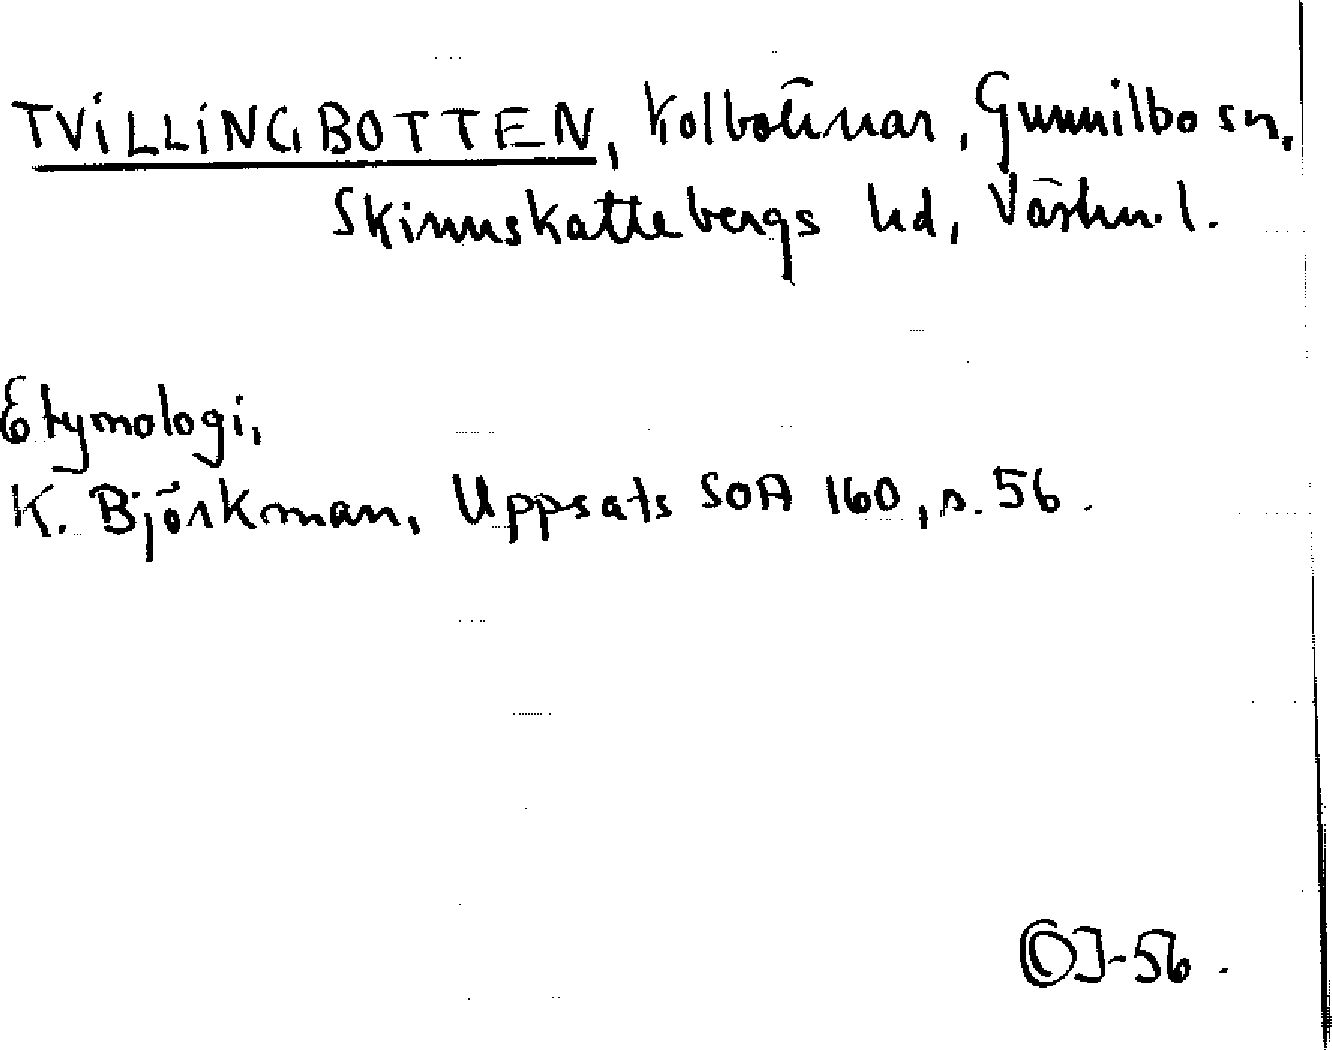 TVILLINGBOTTEN, Kolbottnar, Gunnilbo sn.
Skinnskattebergs hd, Västm. l.
Etymologi,
K. Björkman, Uppsats SOA 160, s. 56.
OJ-56.